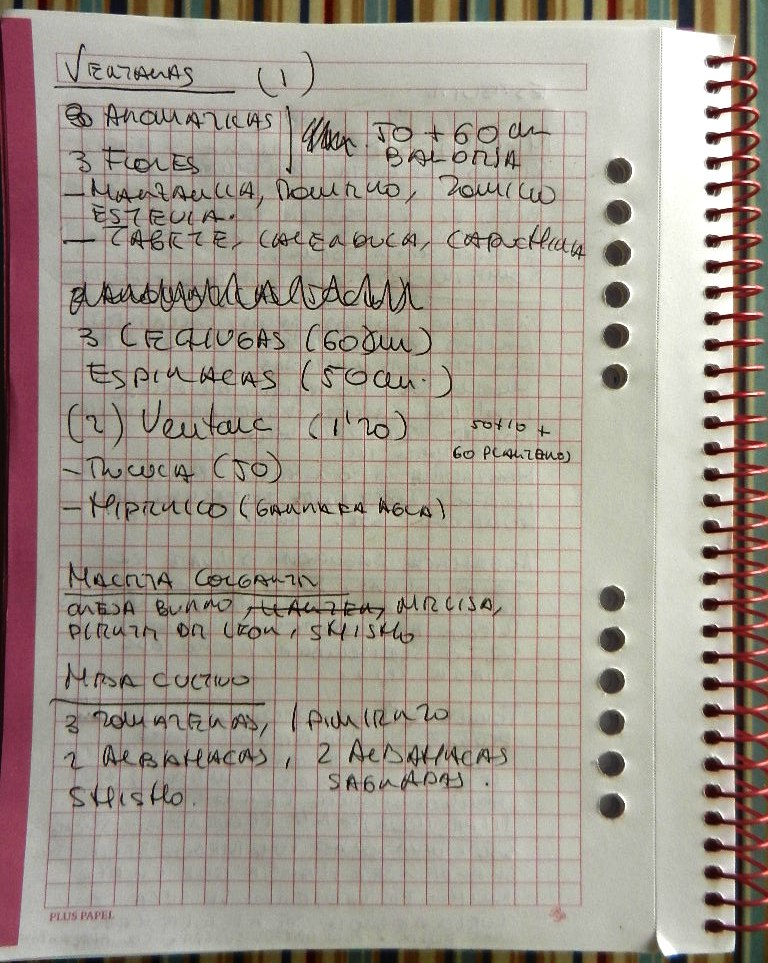 VENTANAS (1)
AROMATICAS 50 + 60 cm
3 FLORES
- MANZANILLA, ROMERO, TOMILLO
ESTEVIA.
- TAGETE, CALENDULA, CAPUCHINA
3 LECHUGAS (60 cm)
ESPINACAS (50 cm.)
(2) Ventana (1'20)
50+10 +
60 PLANTERO)
- RUCULA (50)
- HIDRULCO (GARRAFA AGUA)
MACETA COLGANTE
OREJA BURRO, MELISA,
DIENTE DE LEON, SHISHO
MESA CULTIVO
3 TOMATERAS, 1 PIMIENTO
2 ALBAHACAS, 2 ALBAHACAS
SAGRADAS.
SHISHO.
PLUS PAPEL